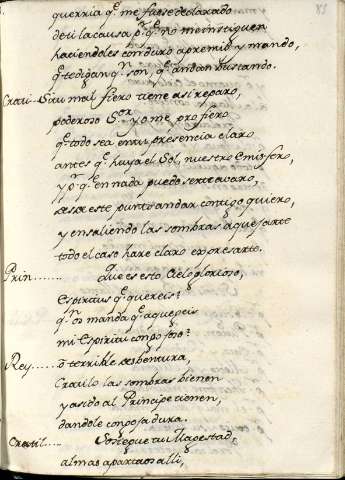 querria q.e me fuese declarado
de ti la causa p.r q.e no me instiguen
haciendoles con duro apremio y mando,
q.e te digan q.n son, q.e andan buscando.
Cravi.. Si tu mal fiero tiene asi reparo,
poderoso S.or yo me profiero
q.e todo sea en tu presencia claro
antes q.e huya el Sol, nuestro Emisfero,
y p.r q.e en nada puedo serte avaro,
desde este punto andar contigo quiero,
y en saliendo las sombras a quejarte
todo el caso hare claro expresarte.
Prin....... Que es esto Cielo glorioso,
Espiritus q.e quereis?
q.n os manda q.e aquejeis
mi Espiritu congojoso?
Rey...... ô terrible desbentura,
Cravilo las sombras bienen
y asido al Principe tienen,
dandole congojadura.
Cravil.... Sosiegue tu Magestad,
almas apartaos alli,